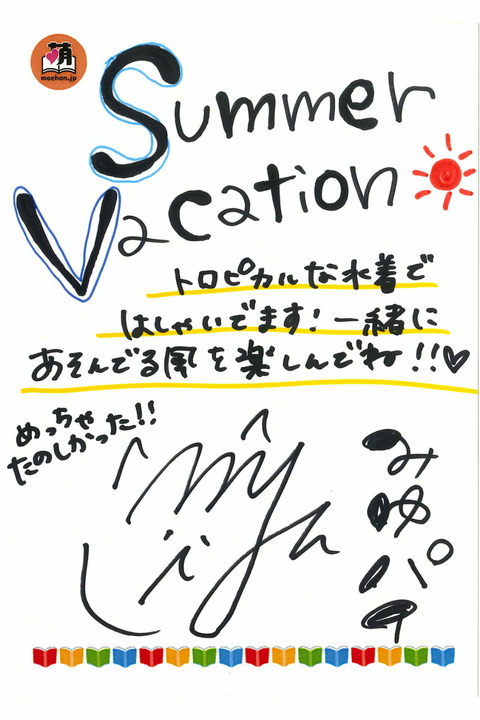 萌
moehon.jp
Summer
Vacation
トロピカルな水着で
はしゃいでます！一緒に
あそんでる風を楽しんでね！！♡
めっちゃ
たのしかった！！